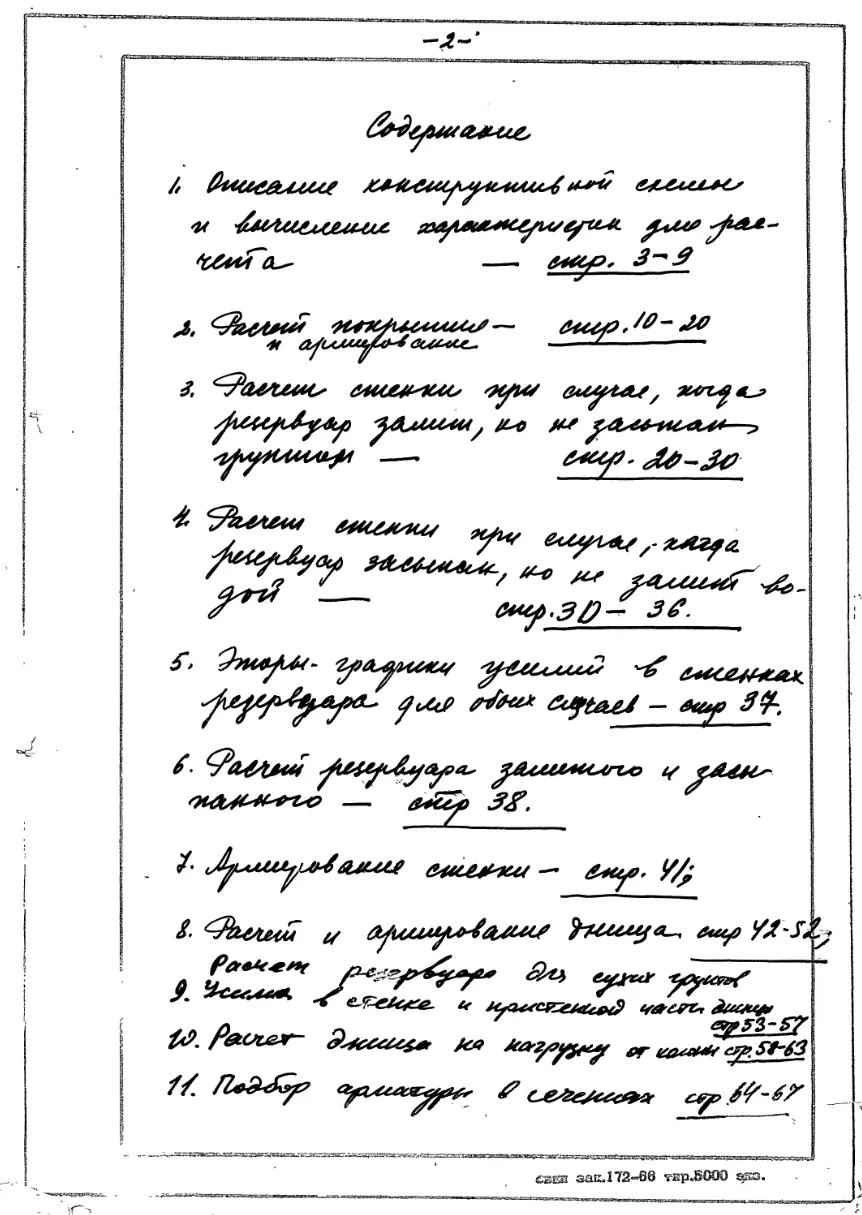 -2-
Содержание
1. Описание конструктивной схемы
и вычисление характеристик для рас-
чета — стр. 3-9
2. Расчет покрытия — стр. 10-20
и армирование
3. Расчет стенки при случае, когда
резервуар залит, но не засыпан
грунтом — стр. 20-30
4. Расчет стенки при случае, когда
резервуар засыпан, но не залит во-
дой — стр. 30-36.
5. Эпюры-графики усилий в стенках
резервуара для обоих случаев - стр 37.
6. Расчет резервуара залитого и засы-
панного — стр 38.
7. Армирование стенки - стр. 41;
8. Расчет и армирование днища. стр 42-52;
Расчет резервуара для сухих грунтов
9. Усилия в стенке и пристенной части днища
стр 53-57
10. Расчет днища на нагрузку от колонн стр. 58-63
11. Подбор арматуры в сечениях стр 64-67
зак.172-66 тир.5000 экз.